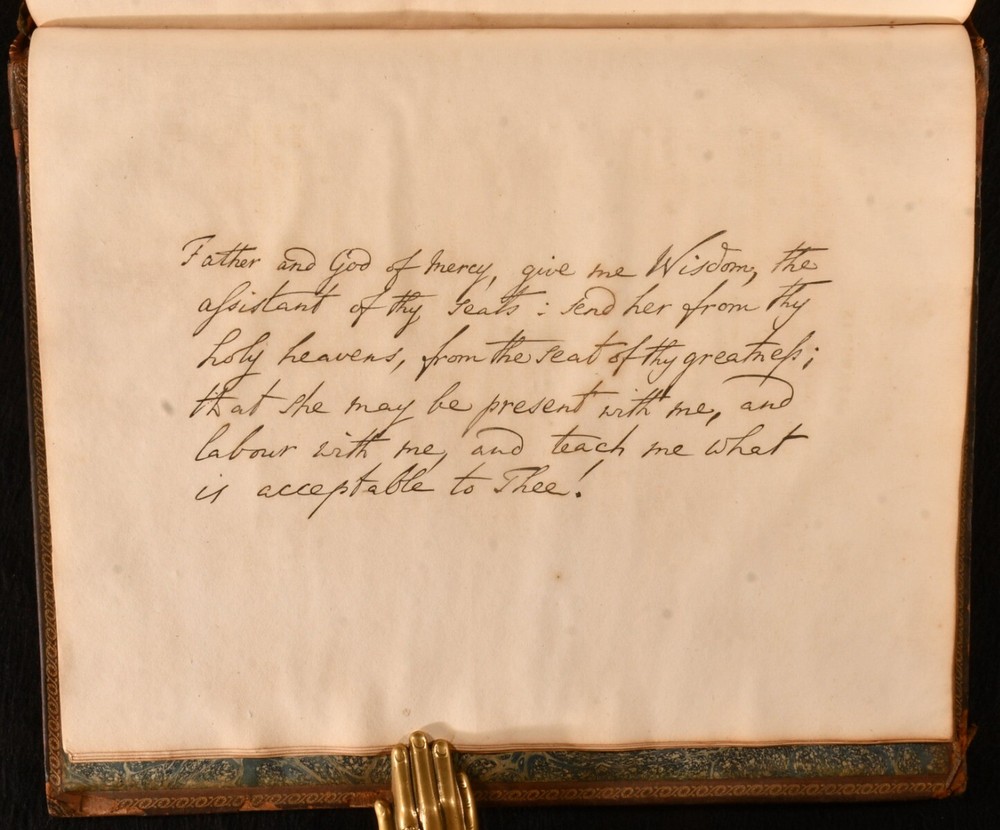 Father and God of Mercy, give me Wisdom, the
aſsistant of thy seats : send her from thy
holy heavens, from the seat of thy greatneſs;
that she may be present with me, and
labour with me, and teach me what
is acceptable to Thee!